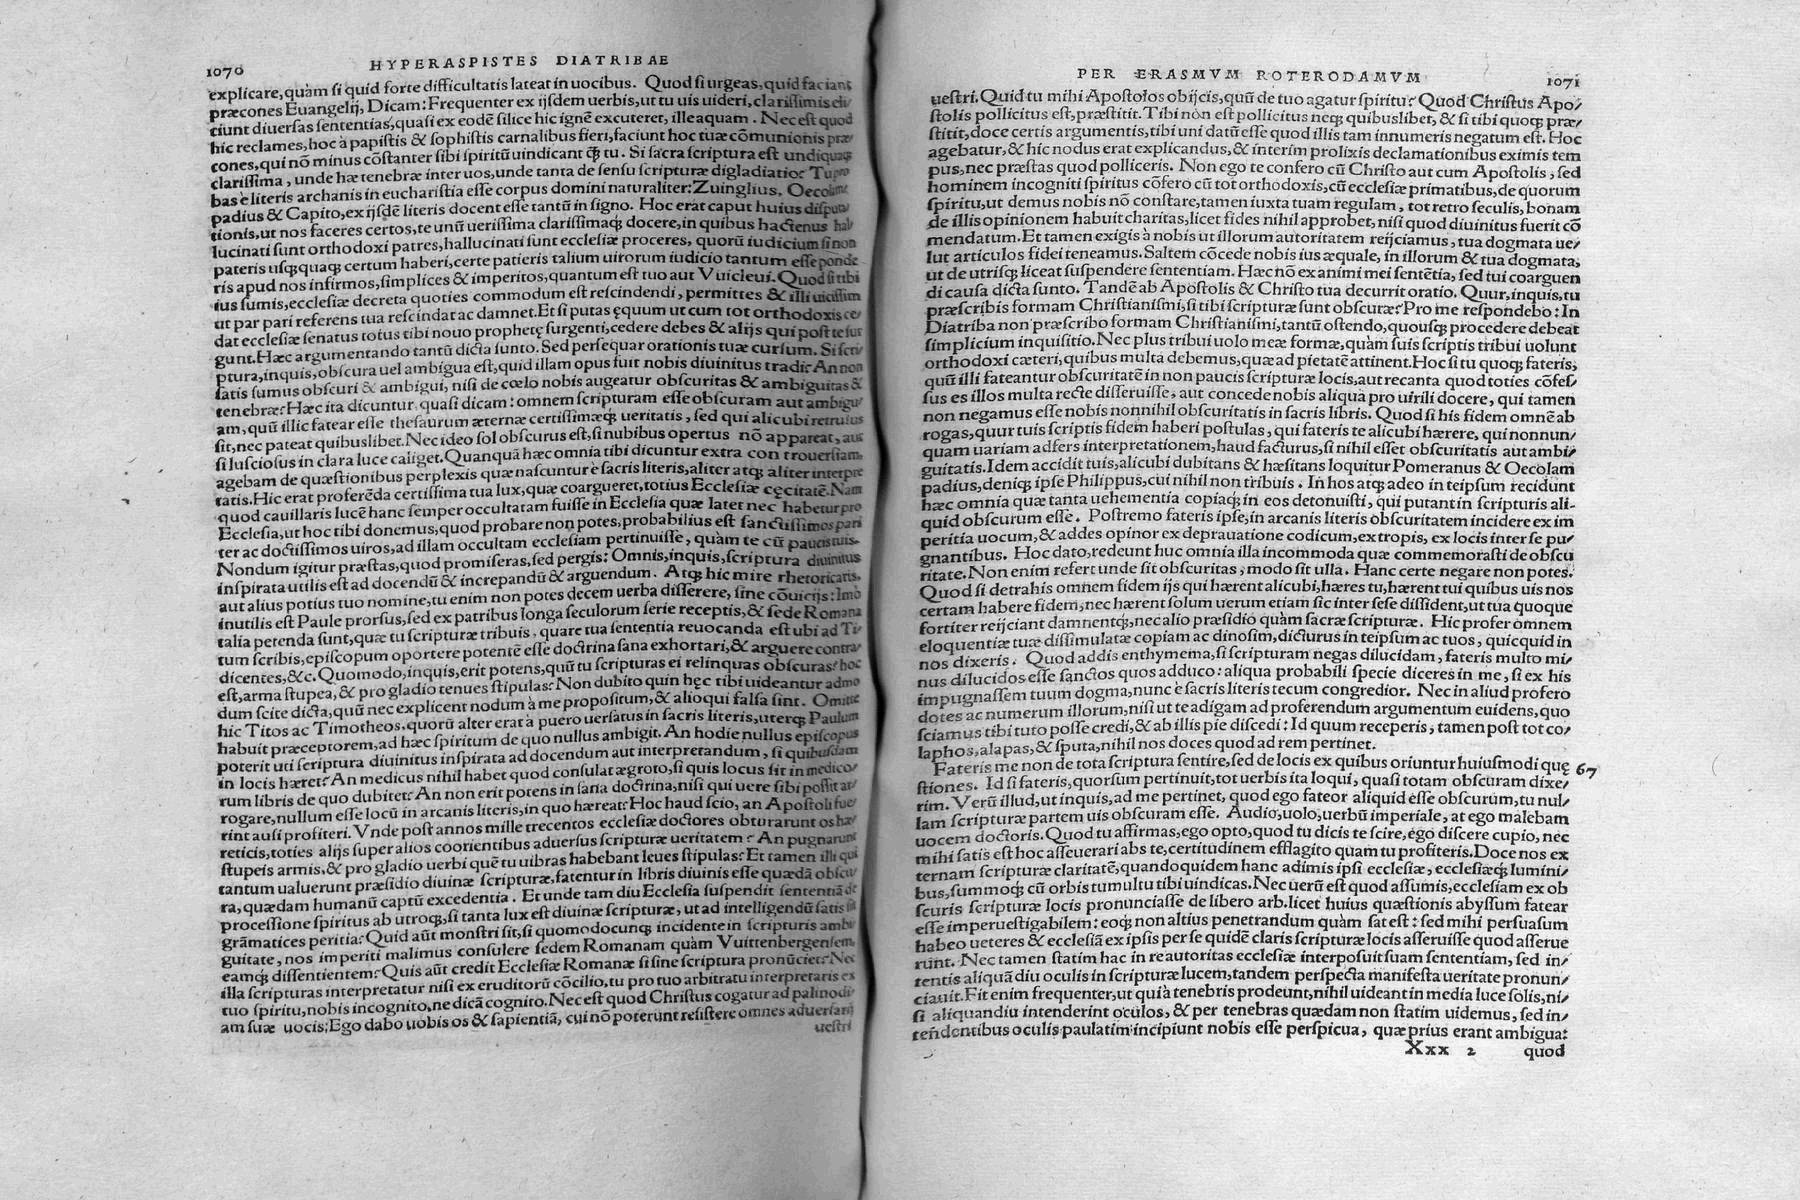 1070 HYPERASPISTES DIATRIBAE
explicare, quàm si quid forte difficultatis lateat in uocibus. Quod si urgeas, quid faciant
præcones Euangelij, Dicam: Frequenter ex ijsdem uerbis, ut tu uis uideri, clarissimis eli/
ciunt diuersas sententias, quasi ex eodẽ silice hic ignẽ excuteret, ille aquam. Nec est quod
hic reclames, hoc à papistis & sophistis carnalibus fieri, faciunt hoc tuæ cõmunionis præ/
cones, qui nõ minus cõstanter sibi spiritũ uindicant ꝗ̃ tu. Si sacra scriptura est undiquaqꝫ
clarissima, unde hæ tenebræ inter uos, unde tanta de sensu scripturæ digladiatio? Tu pro
bas è literis archanis in eucharistia esse corpus domini naturaliter: Zuinglius, Oecolam
padius & Capito, ex ijsdẽ literis docent esse tantũ in signo. Hoc erat caput huius disputa/
tionis, ut nos faceres certos, te unũ uerissima clarissimaqꝫ docere, in quibus hactenus hal/
lucinati sunt orthodoxi patres, hallucinati sunt ecclesiæ proceres, quorũ iudicium si non
pateris usqꝫquaqꝫ certum haberi, certe patieris talium uirorum iudicio tantum esse ponde
ris apud nos infirmos, simplices & imperitos, quantum est tuo aut Vuicleui. Quod si tibi
ius sumis, ecclesiæ decreta quoties commodum est rescindendi, permittes & illi uicissim
ut par pari referens tua rescindat ac damnet. Et si putas ęquum ut cum tot orthodoxis ce/
dat ecclesiæ senatus totus tibi nouo prophetę surgenti, cedere debes & alijs qui post te sur
gunt. Hæc argumentando tantũ dicta sunto. Sed persequar orationis tuæ cursum. Si scri/
ptura, inquis, obscura uel ambigua est, quid illam opus fuit nobis diuinitus tradi? An non
satis sumus obscuri & ambigui, nisi de cœlo nobis augeatur obscuritas & ambiguitas &
tenebræ? Hæc ita dicuntur quasi dicam: omnem scripturam esse obscuram aut ambigu/
am, quũ illic fatear esse thesaurum æternæ certissimæqꝫ ueritatis, sed qui alicubi retrusus
sit, nec pateat quibuslibet. Nec ideo sol obscurus est, si nubibus opertus nõ appareat, aut
si lusciosus in clara luce caliget. Quanquã hæc omnia tibi dicuntur extra controuersiam,
agebam de quæstionibus perplexis quæ nascuntur è sacris literis, aliter atqꝫ aliter interpre
tatis. Hic erat proferẽda certissima tua lux, quæ coargueret, totius Ecclesiæ cęcitatẽ. Nam
quod cauillaris lucẽ hanc semper occultatam fuisse in Ecclesia quæ latet nec habetur pro
Ecclesia, ut hoc tibi donemus, quod probare non potes, probabilius est sanctissimos pari
ter ac doctissimos uiros, ad illam occultam ecclesiam pertinuisse, quàm te cũ paucis tuis.
Nondum igitur præstas, quod promiseras, sed pergis: Omnis, inquis, scriptura diuinitus
inspirata utilis est ad docendũ & increpandũ & arguendum. Atqꝫ hic mire rhetoricaris,
aut alius potius tuo nomine, tu enim non potes decem uerba disserere, sine cõuicijs: Imò
inutilis est Paule prorsus, sed ex patribus longa seculorum serie receptis, & sede Romana
talia petenda sunt, quæ tu scripturæ tribuis, quare tua sententia reuocanda est ubi ad Ti/
tum scribis, episcopum oportere potentẽ esse doctrina sana exhortari, & arguere contra/
dicentes, &c. Quomodo, inquis, erit potens, quũ tu scripturas ei relinquas obscuras? hoc
est, arma stupea, & pro gladio tenues stipulas? Non dubito quin hęc tibi uideantur admo
dum scite dicta, quũ nec explicent nodum à me propositum, & alioqui falsa sint. Omitte
hic Titos ac Timotheos, quorũ alter erat à puero uersatus in sacris literis, uterqꝫ Paulum
habuit præceptorem, ad hæc spiritum de quo nullus ambigit. An hodie nullus episcopus
poterit uti scriptura diuinitus inspirata ad docendum aut interpretandum, si quibusdam
in locis hæret? An medicus nihil habet quod consulat ægroto, si quis locus sit in medico/
rum libris de quo dubitet? An non erit potens in sana doctrina, nisi qui uere sibi possit ar/
rogare, nullum esse locũ in arcanis literis, in quo hæreat? Hoc haud scio, an Apostoli fue/
rint ausi profiteri. Vnde post annos mille trecentos ecclesiæ doctores obturarunt os hæ/
reticis, toties alijs super alios coorientibus aduersus scripturæ ueritatem? An pugnarunt
stupeis armis, & pro gladio uerbi quẽ tu uibras habebant leues stipulas? Et tamen illi qui
tantum ualuerunt præsidio diuinæ scripturæ, fatentur in libris diuinis esse quædã obscu/
ra, quædam humanũ captũ excedentia. Et unde tam diu Ecclesia suspendit sententiã de
processione spiritus ab utroqꝫ, si tanta lux est diuinæ scripturæ, ut ad intelligendũ satis sit
grãmatices peritia? Quid aũt monstri sit, si quomodocunqꝫ incidente in scripturis ambi
guitate, nos imperiti malimus consulere sedem Romanam quàm Vuittenbergensem,
eamqꝫ dissentientem? Quis aũt credit Ecclesiæ Romanæ si sine scriptura pronũciet? Nec
illa scripturas interpretatur nisi ex eruditorũ cõcilio, tu pro tuo arbitratu interpretaris ex
tuo spiritu, nobis incognito, ne dicã cognito. Nec est quod Christus cogatur ad palinodi/
am suæ uocis; Ego dabo uobis os & sapientiã, cui nõ poterunt resistere omnes aduersarij
uestri
PER ERASMVM ROTERODAMVM 1071
uestri. Quid tu mihi Apostolos obijcis, quũ de tuo agatur spiritu? Quod Christus Apo/
stolis pollicitus est, præstitit. Tibi non est pollicitus neqꝫ quibuslibet, & si tibi quoqꝫ præ/
stitit, doce certis argumentis, tibi uni datũ esse quod illis tam innumeris negatum est. Hoc
agebatur, & hic nodus erat explicandus, & interim prolixis declamationibus eximis tem
pus, nec præstas quod polliceris. Non ego te confero cũ Christo aut cum Apostolis, sed
hominem incogniti spiritus cõfero cũ tot orthodoxis, cũ ecclesiæ primatibus, de quorum
spiritu, ut demus nobis nõ constare, tamen iuxta tuam regulam, tot retro seculis, bonam
de illis opinionem habuit charitas, licet fides nihil approbet, nisi quod diuinitus fuerit cõ
mendatum. Et tamen exigis à nobis ut illorum autoritatem reijciamus, tua dogmata ue/
lut articulos fidei teneamus. Saltem cõcede nobis ius æquale, in illorum & tua dogmata,
ut de utrisqꝫ liceat suspendere sententiam. Hæc nõ ex animi mei sentẽtia, sed tui coarguen
di causa dicta sunto. Tandẽ ab Apostolis & Christo tua decurrit oratio. Quur, inquis, tu
præscribis formam Christianismi, si tibi scripturæ sunt obscuræ? Pro me respondebo: In
Diatriba non præscribo formam Christianismi, tantũ ostendo, quousqꝫ procedere debeat
simplicium inquisitio. Nec plus tribui uolo meæ formæ, quàm suis scriptis tribui uolunt
orthodoxi cæteri, quibus multa debemus, quæ ad pietatẽ attinent. Hoc si tu quoqꝫ fateris,
quũ illi fateantur obscuritatẽ in non paucis scripturæ locis, aut recanta quod toties cõfes/
sus es illos multa recte disseruisse, aut concede nobis aliquà pro uirili docere, qui tamen
non negamus esse nobis nonnihil obscuritatis in sacris libris. Quod si his fidem omnẽ ab
rogas, quur tuis scriptis fidem haberi postulas, qui fateris te alicubi hærere, qui nonnun/
quam uariam adfers interpretationem, haud facturus, si nihil esset obscuritatis aut ambi/
guitatis. Idem accidit tuis, alicubi dubitans & hæsitans loquitur Pomeranus & Oecolam
padius, deniqꝫ ipse Philippus, cui nihil non tribuis. In hos atqꝫ adeo in teipsum recidunt
hæc omnia quæ tanta uehementia copiaqꝫ in eos detonuisti, qui putant in scripturis ali-
quid obscurum esse. Postremo fateris ipse, in arcanis literis obscuritatem incidere ex im
peritia uocum, & addes opinor ex deprauatione codicum, ex tropis, ex locis inter se pu/
gnantibus. Hoc dato, redeunt huc omnia illa incommoda quæ commemorasti de obscu
ritate. Non enim refert unde sit obscuritas, modo sit ulla. Hanc certe negare non potes.
Quod si detrahis omnem fidem ijs qui hærent alicubi, hæres tu, hærent tui quibus uis nos
certam habere fidem, nec hærent solum uerum etiam sic inter sese dissident, ut tua quoque
fortiter reijciant damnentqꝫ, nec alio præsidio quàm sacræ scripturæ. Hic profer omnem
eloquentiæ tuæ dissimulatæ copiam ac dinosim, dicturus in teipsum ac tuos, quicquid in
nos dixeris. Quod addis enthymema, si scripturam negas dilucidam, fateris multo mi/
nus dilucidos esse sanctos quos adduco: aliqua probabili specie diceres in me, si ex his
impugnassem tuum dogma, nunc è sacris literis tecum congredior. Nec in aliud profero
dotes ac numerum illorum, nisi ut te adigam ad proferendum argumentum euidens, quo
sciamus tibi tuto posse credi, & ab illis pie discedi: Id quum receperis, tamen post tot co/
laphos, alapas, & sputa, nihil nos doces quod ad rem pertinet.
Fateris me non de tota scriptura sentire, sed de locis ex quibus oriuntur huiusmodi quę 67
stiones. Id si fateris, quorsum pertinuit, tot uerbis ita loqui, quasi totam obscuram dixe/
rim. Verũ illud, ut inquis, ad me pertinet, quod ego fateor aliquid esse obscurum, tu nul/
lam scripturæ partem uis obscuram esse. Audio, uolo, uerbũ imperiale, at ego malebam
uocem doctoris. Quod tu affirmas, ego opto, quod tu dicis te scire, ego discere cupio, nec
mihi satis est hoc asseuerari abs te, certitudinem efflagito quam tu profiteris. Doce nos ex
ternam scripturæ claritatẽ, quandoquidem hanc adimis ipsi ecclesiæ, ecclesiæqꝫ lumini/
bus, summoqꝫ cũ orbis tumultu tibi uindicas. Nec uerũ est quod assumis, ecclesiam ex ob
scuris scripturæ locis pronunciasse de libero arb. licet huius quæstionis abyssum fatear
esse imperuestigabilem: eoqꝫ non altius penetrandum quàm sat est: sed mihi persuasum
habeo ueteres & ecclesiã ex ipsis per se quidẽ claris scripturæ locis asseruisse quod asserue
runt. Nec tamen statim hac in re autoritas ecclesiæ interposuit suam sententiam, sed in/
tentis aliquã diu oculis in scripturæ lucem, tandem perspecta manifesta ueritate pronun/
ciauit. Fit enim frequenter, ut qui à tenebris prodeunt, nihil uideant in media luce solis, ni/
si aliquandiu intenderint oculos, & per tenebras quædam non statim uidemus, sed in/
tendentibus oculis paulatim incipiunt nobis esse perspicua, quæ prius erant ambigua:
Xxx 2 quod